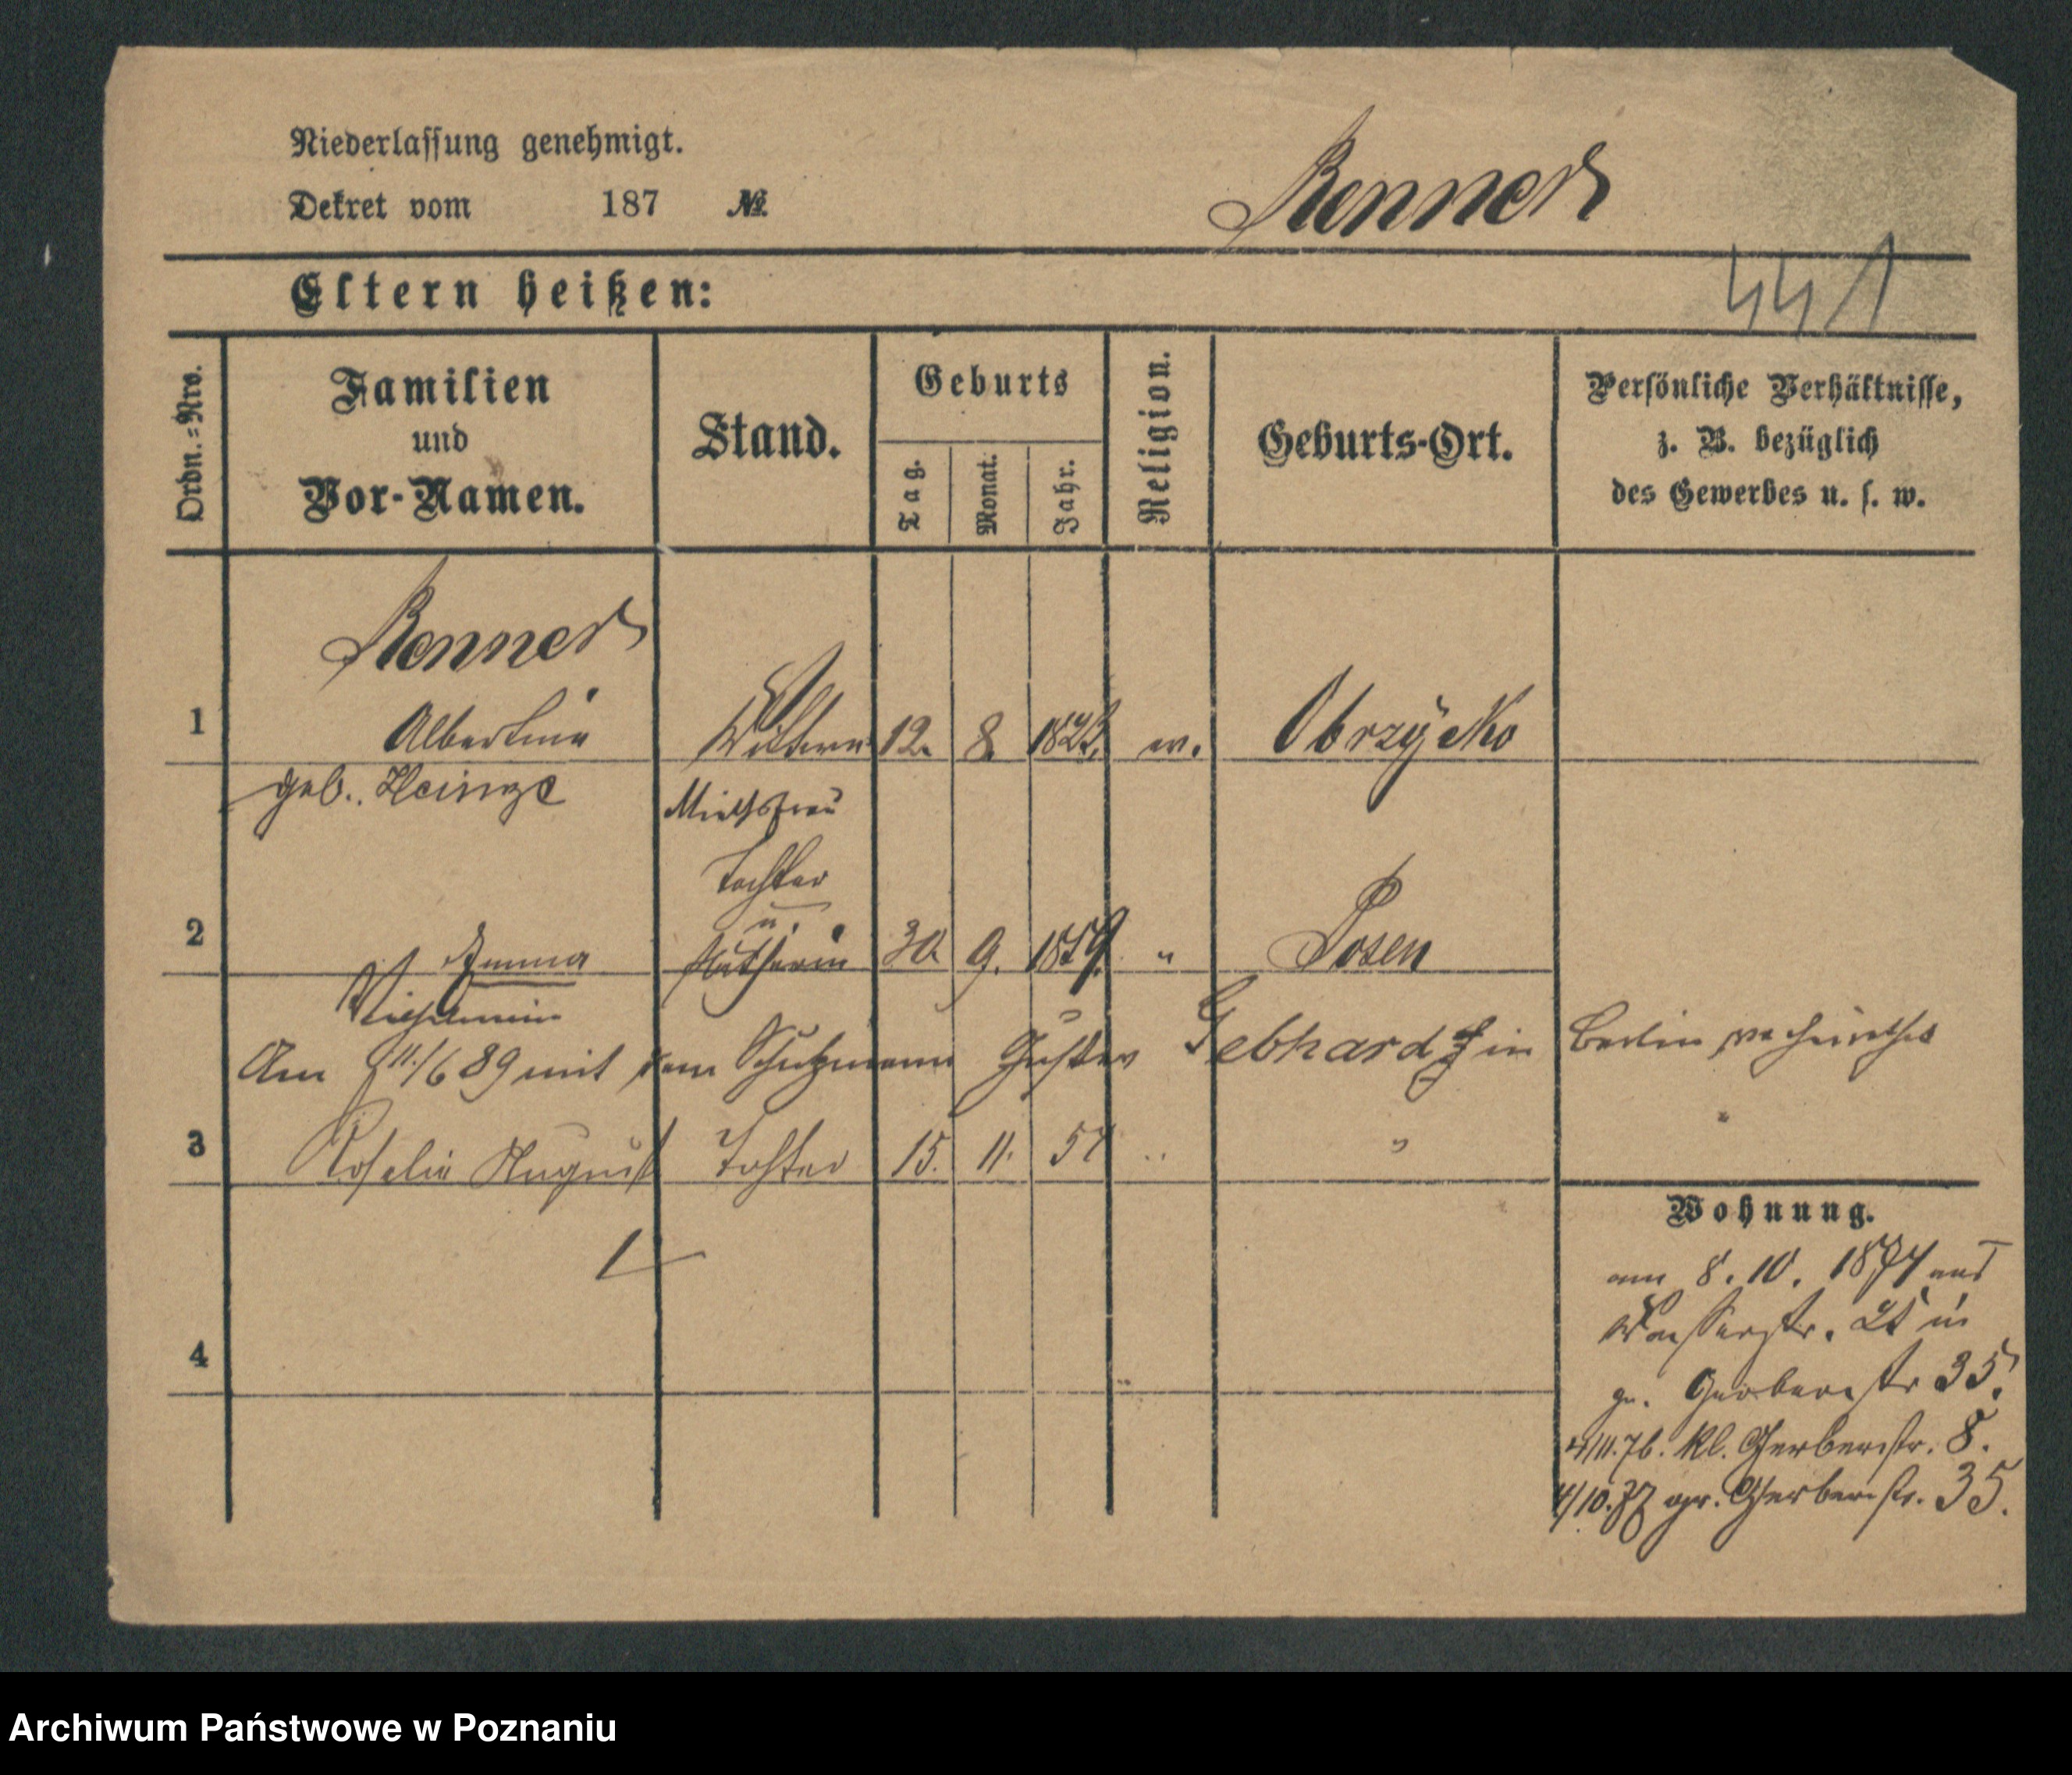 Niederlassung genehmigt.
Dekret vom 187 №
Renner
Eltern heißen:
441
Ordn.=Nro.
Familien
und
Vor-Namen.
Stand.
Geburts
Tag.
Monat.
Jahr.
Religion.
Geburts-Ort.
Persönliche Verhältnisse,
z. B. bezüglich
des Gewerbes u. s. w.
Renner
1 Albertine Wittwe 12. 8. ev. Obrzycko
geb. Heinze Miethsfrau
Tochter
u.
2 Emma Nätherin 30. 9. 1859. " Posen
Wilhelmine
Am 11./6 89 mit dem Schutzmann Gustav Gebhardt in Berlin verheirathet
3 Rosalie August Tochter 15. 11. 57 " "
Wohnung.
am 8. 10. 1874 aus
Wasserstr. 25 in
gr. Gerberstr 35.
4/11.76. kl. Gerberstr. 8.
4/10.77 gr. Gerberstr. 35.
4
Archiwum Państwowe w Poznaniu